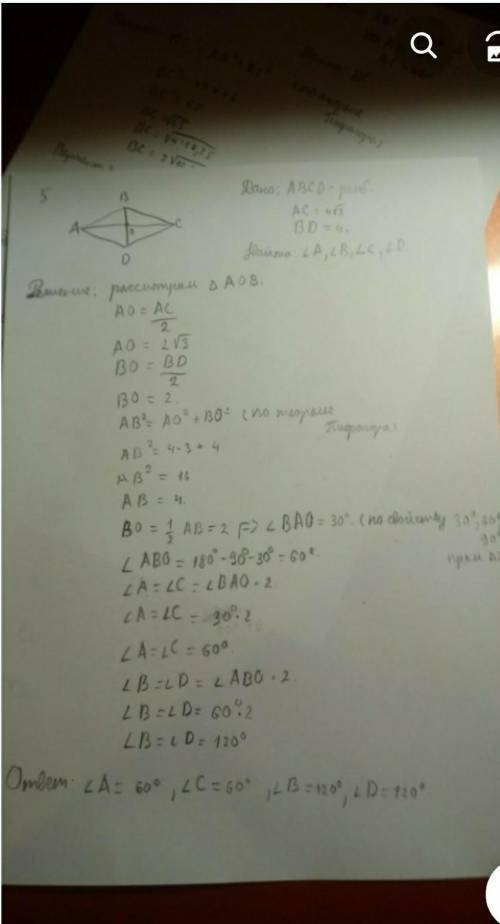 BC = 2√
5
Дано: ABCD - ромб.
AC = 4√3
BD = 4.
Найти: ∠A, ∠B, ∠C, ∠D.
B
A
C
D
Решение: рассмотрим △AOB.
AO = AC/2
AO = 2√3
BO = BD/2
BO = 2.
AB² = AO² + BO² (по теореме
Пифагора)
AB² = 4·3 + 4
AB² = 16
AB = 4.
BO = 1/2 AB = 2 => ∠BAO = 30°. (по свойству 30°,
90°
прям △
∠ABO = 180° - 90° - 30° = 60°.
∠A = ∠C = ∠BAO · 2
∠A = ∠C = 30° · 2
∠A = ∠C = 60°
∠B = ∠D = ∠ABO · 2.
∠B = ∠D = 60° · 2
∠B = ∠D = 120°
Ответ: ∠A = 60°, ∠C = 60°, ∠B = 120°, ∠D = 120°